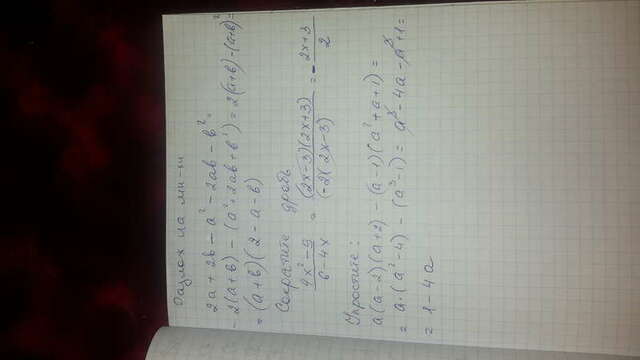 Разлож на мн-и
2a + 2b - a² - 2ab - b² =
- 2(a+b) - (a² + 2ab + b²) = 2(a+b) - (a+b)² =
= (a+b)(2 - a - b)
Сократите дробь
4x² - 9 / 6 - 4x = (2x-3)(2x+3) / (-2(2x-3) = - 2x+3 / 2
Упростите:
a(a-2)(a+2) - (a-1)(a²+a+1) =
= a·(a²-4) - (a³-1) = a³ - 4a - a³ + 1 =
= 1 - 4a